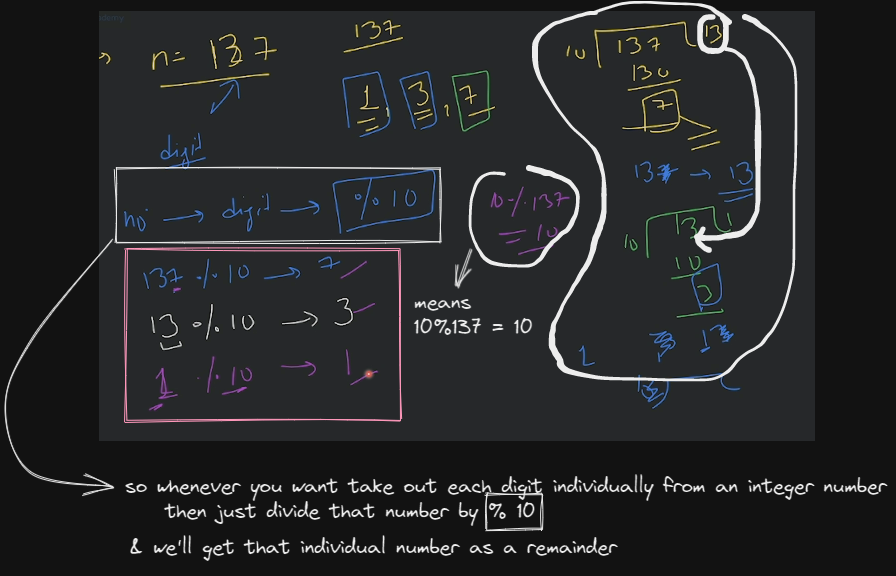 n = 137
137
1, 3, 7
digit
no → digit → % 10
137 % 10 → 7
13 % 10 → 3
1 % 10 → 1
10 % 137
= 10
means
10%137 = 10
10 137 13
130
7
137 → 13
10 13 1
10
3
1
so whenever you want take out each digit individually from an integer number
then just divide that number by % 10
& we'll get that individual number as a remainder